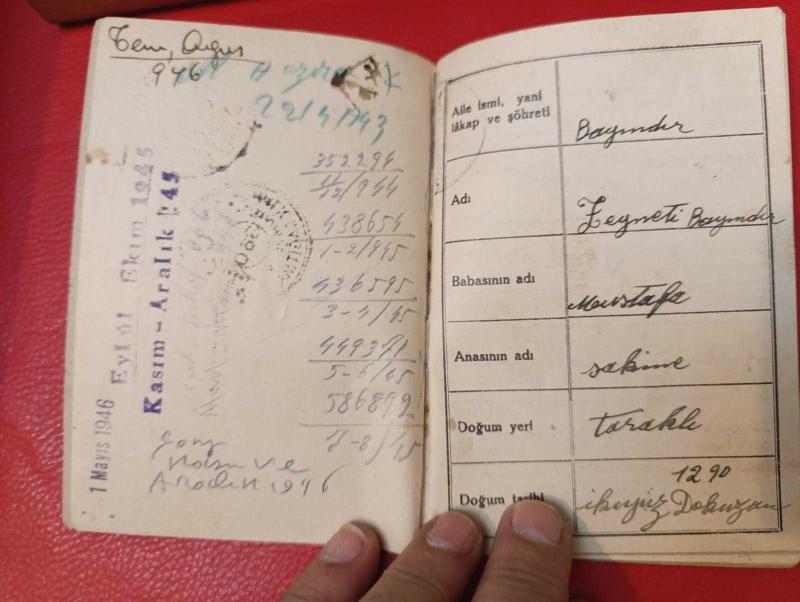 Tem, Ağus
946
Hazira
22/4/943
352294
11/12/944
438654
1-2/945
436595
3-4/45
449371
5-6/45
586892
7-8/45
1 Mayıs 1946
Eylûl Ekim 1945
Kasım - Aralık 945
Kasım ve
Aralık 1946
Aile ismi, yani
lâkap ve şöhreti
Bayındır
Adı
Zeyneti Bayındır
Babasının adı
Mustafa
Anasının adı
sakine
Doğum yeri
taraklı
Doğum tarihi
1290
ikiyüz Dokuzan